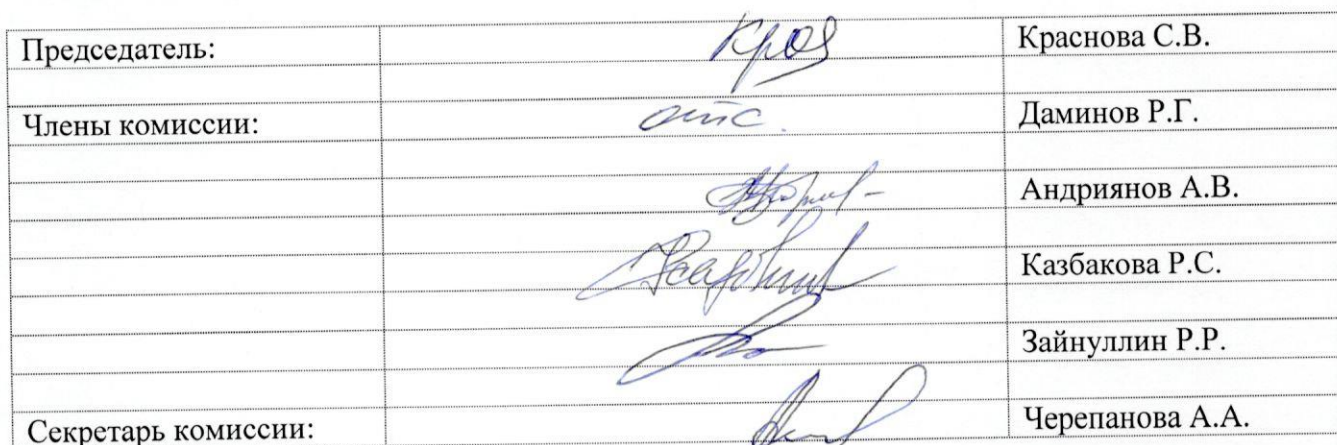 Председатель: Краснова С.В.
Члены комиссии: отс. Даминов Р.Г.
Андриянов А.В.
Казбакова Р.С.
Зайнуллин Р.Р.
Секретарь комиссии: Черепанова А.А.